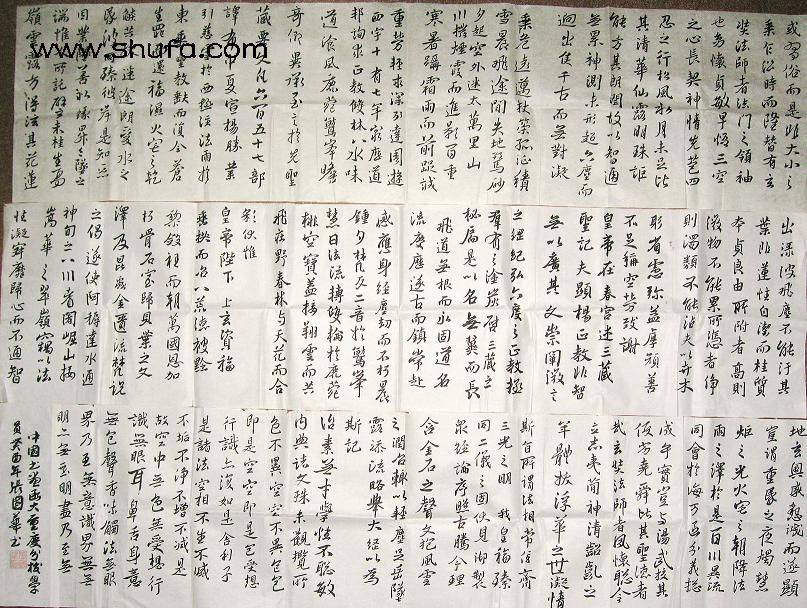 www.shufa.com
或習俗而是非大小之
乘乍沿時而隆替有玄
奘法師者法門之領袖
也幼懷貞敏早悟三空
之心長契神情先苞四
忍之行松風水月未足比
其清華仙露明珠詎
能方其朗潤故以智通
無累神測未形超六塵而
迥出隻千古而無對凝
乘危遠邁杖策孤征積
雪晨飛途間失地驚砂
夕起空外迷天萬里山
川撥煙霞而進影百重
寒暑躡霜雨而前蹤誠
重勞輕求深願達周遊
西宇十有七年窮歷道
邦詢求正教雙林八水味
道湌風鹿苑鷲峯瞻
奇仰異承至言於先聖
藏要文凡六百五十七部
譯布中夏宣揚勝業
引慈雲於西極注法雨於
東垂聖教缺而復全蒼
生罪而還福濕火宅之乾
燄共拔迷途朗愛水之
昏波同臻彼岸是知惡
因業墜善以緣昇昇墜之
惟人所託譬夫桂生高
嶺雲露方得泫其花蓮
出淥波飛塵不能汙其
葉非蓮性自潔而桂質
本貞良由所附者高則
微物不能累所憑者淨
則濁類不能沾夫以卉木
益厚顏善
不足稱空勞致謝
皇帝在春宮述三藏
聖記夫顯揚正教非智
無以廣其文崇闡微言
之綱紀弘六度之正教拯
群有之塗炭啟三藏之
秘扃是以名無翼而長
飛道無根而永固道名
流慶歷遂古而鎮常赴
感應身經塵劫而不朽晨
鐘夕梵交二音於鷲峯
慧日法流轉雙輪於鹿菀
排空寶蓋接翔雲而共
飛莊野春林與天花而合
彩伏惟
皇帝陛下上玄資福
垂拱而治八荒德被黔
黎斂衽而朝萬國恩加
朽骨石室歸貝葉之文
澤及昆蟲金匱流梵說
之偈遂使阿耨達水通
神甸之八川耆闍崛山接
嵩華之翠嶺竊以法
性凝寂靡歸心而不通智
地玄奧感懇誠而遂顯
豈謂重昏之夜燭慧
炬之光火宅之朝降法
雨之澤於是百川異流
同會於海萬區分義總
成乎實豈與湯武校其
優劣堯舜比其聖德者
哉玄奘法師者夙懷聰令
立志夷簡神清齠齔之
年體拔浮華之世凝情
斯旨所謂法相常住齊
三光之明我皇福臻
同二儀之固伏見御製
眾經論序照古騰今理
含金石之聲文抱風雲
之潤治輒以輕塵足岳墜
露添流略舉大綱以為
斯記
治素無才學性不聰敏
內典諸文殊未觀覽所
色不異空空不異色色
即是空空即是色受想
行識亦復如是舍利子
是諸法空相不生不滅
不垢不淨不增不減是
故空中無色無受想行
識無眼耳鼻舌身意
無色聲香味觸法無眼
界乃至無意識界無無
明亦無無明盡乃至無
中國書畫函大重慶分校學
員癸酉年張國華書